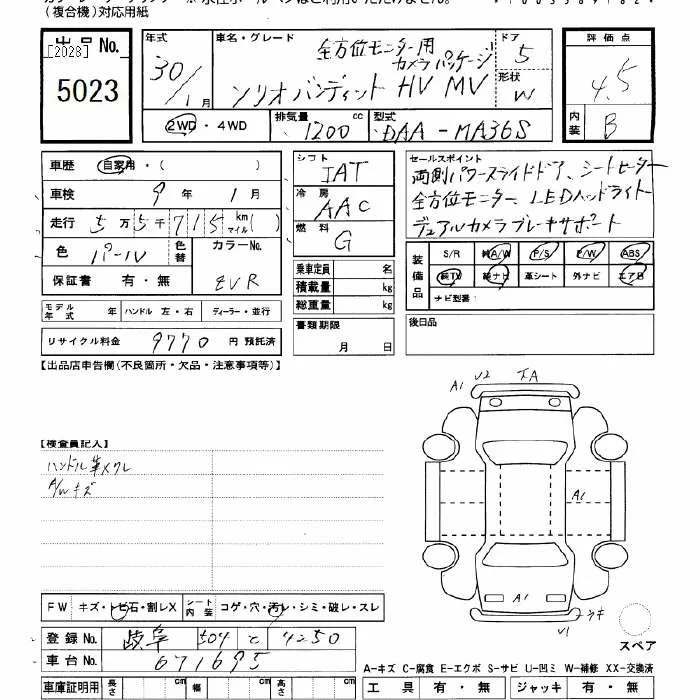 (複合機)対応用紙
出品No. [2028] 5023
年式 30/1月
車名・グレード 全方位モニター用カメラパッケージ
ソリオ バンディット HV MV
ドア 5
形状 W
評価点 4.5
内装 B
2WD・4WD
排気量 1200 cc
型式 DAA-MA36S
車歴 自家用・( )
車検 9年 1月
走行 5万5千715 km マイル( )
色 パール
色替
カラーNo. ZVR
保証書 有・無
シフト IAT
冷房 AAC
燃料 G
乗車定員 名
積載量 kg
総重量 kg
書類期限 月 日
セールスポイント
両側パワースライドドア、シートヒーター
全方位モニター、LEDヘッドライト
デュアルカメラブレーキサポート
装備品 S/R 純A/W P/S P/W ABS
純TV 純ナビ 革シート 外ナビ エアB
ナビ型番:
後日品
モデル年式 年 ハンドル 左・右 ディーラー・並行
リサイクル料金 9770 円 預託済
【出品店申告欄(不良箇所・欠品・注意事項等)】
【検査員記入】
ハンドル革スレ
A/Wキズ
A1 U2 エA
A1
A1 A1
ウキ
V1
スペア
FW キズ・トビ石・割レX シート内装 コゲ・穴・汚レ・シミ・破レ・スレ
登録No. 岐阜 504 と 4250
車台No. 671695
A-キズ C-腐食 E-エクボ S-サビ U-凹ミ W-補修 XX-交換済
車庫証明用 長さ cm 幅 cm 高さ cm
工具 有・無 ジャッキ 有・無